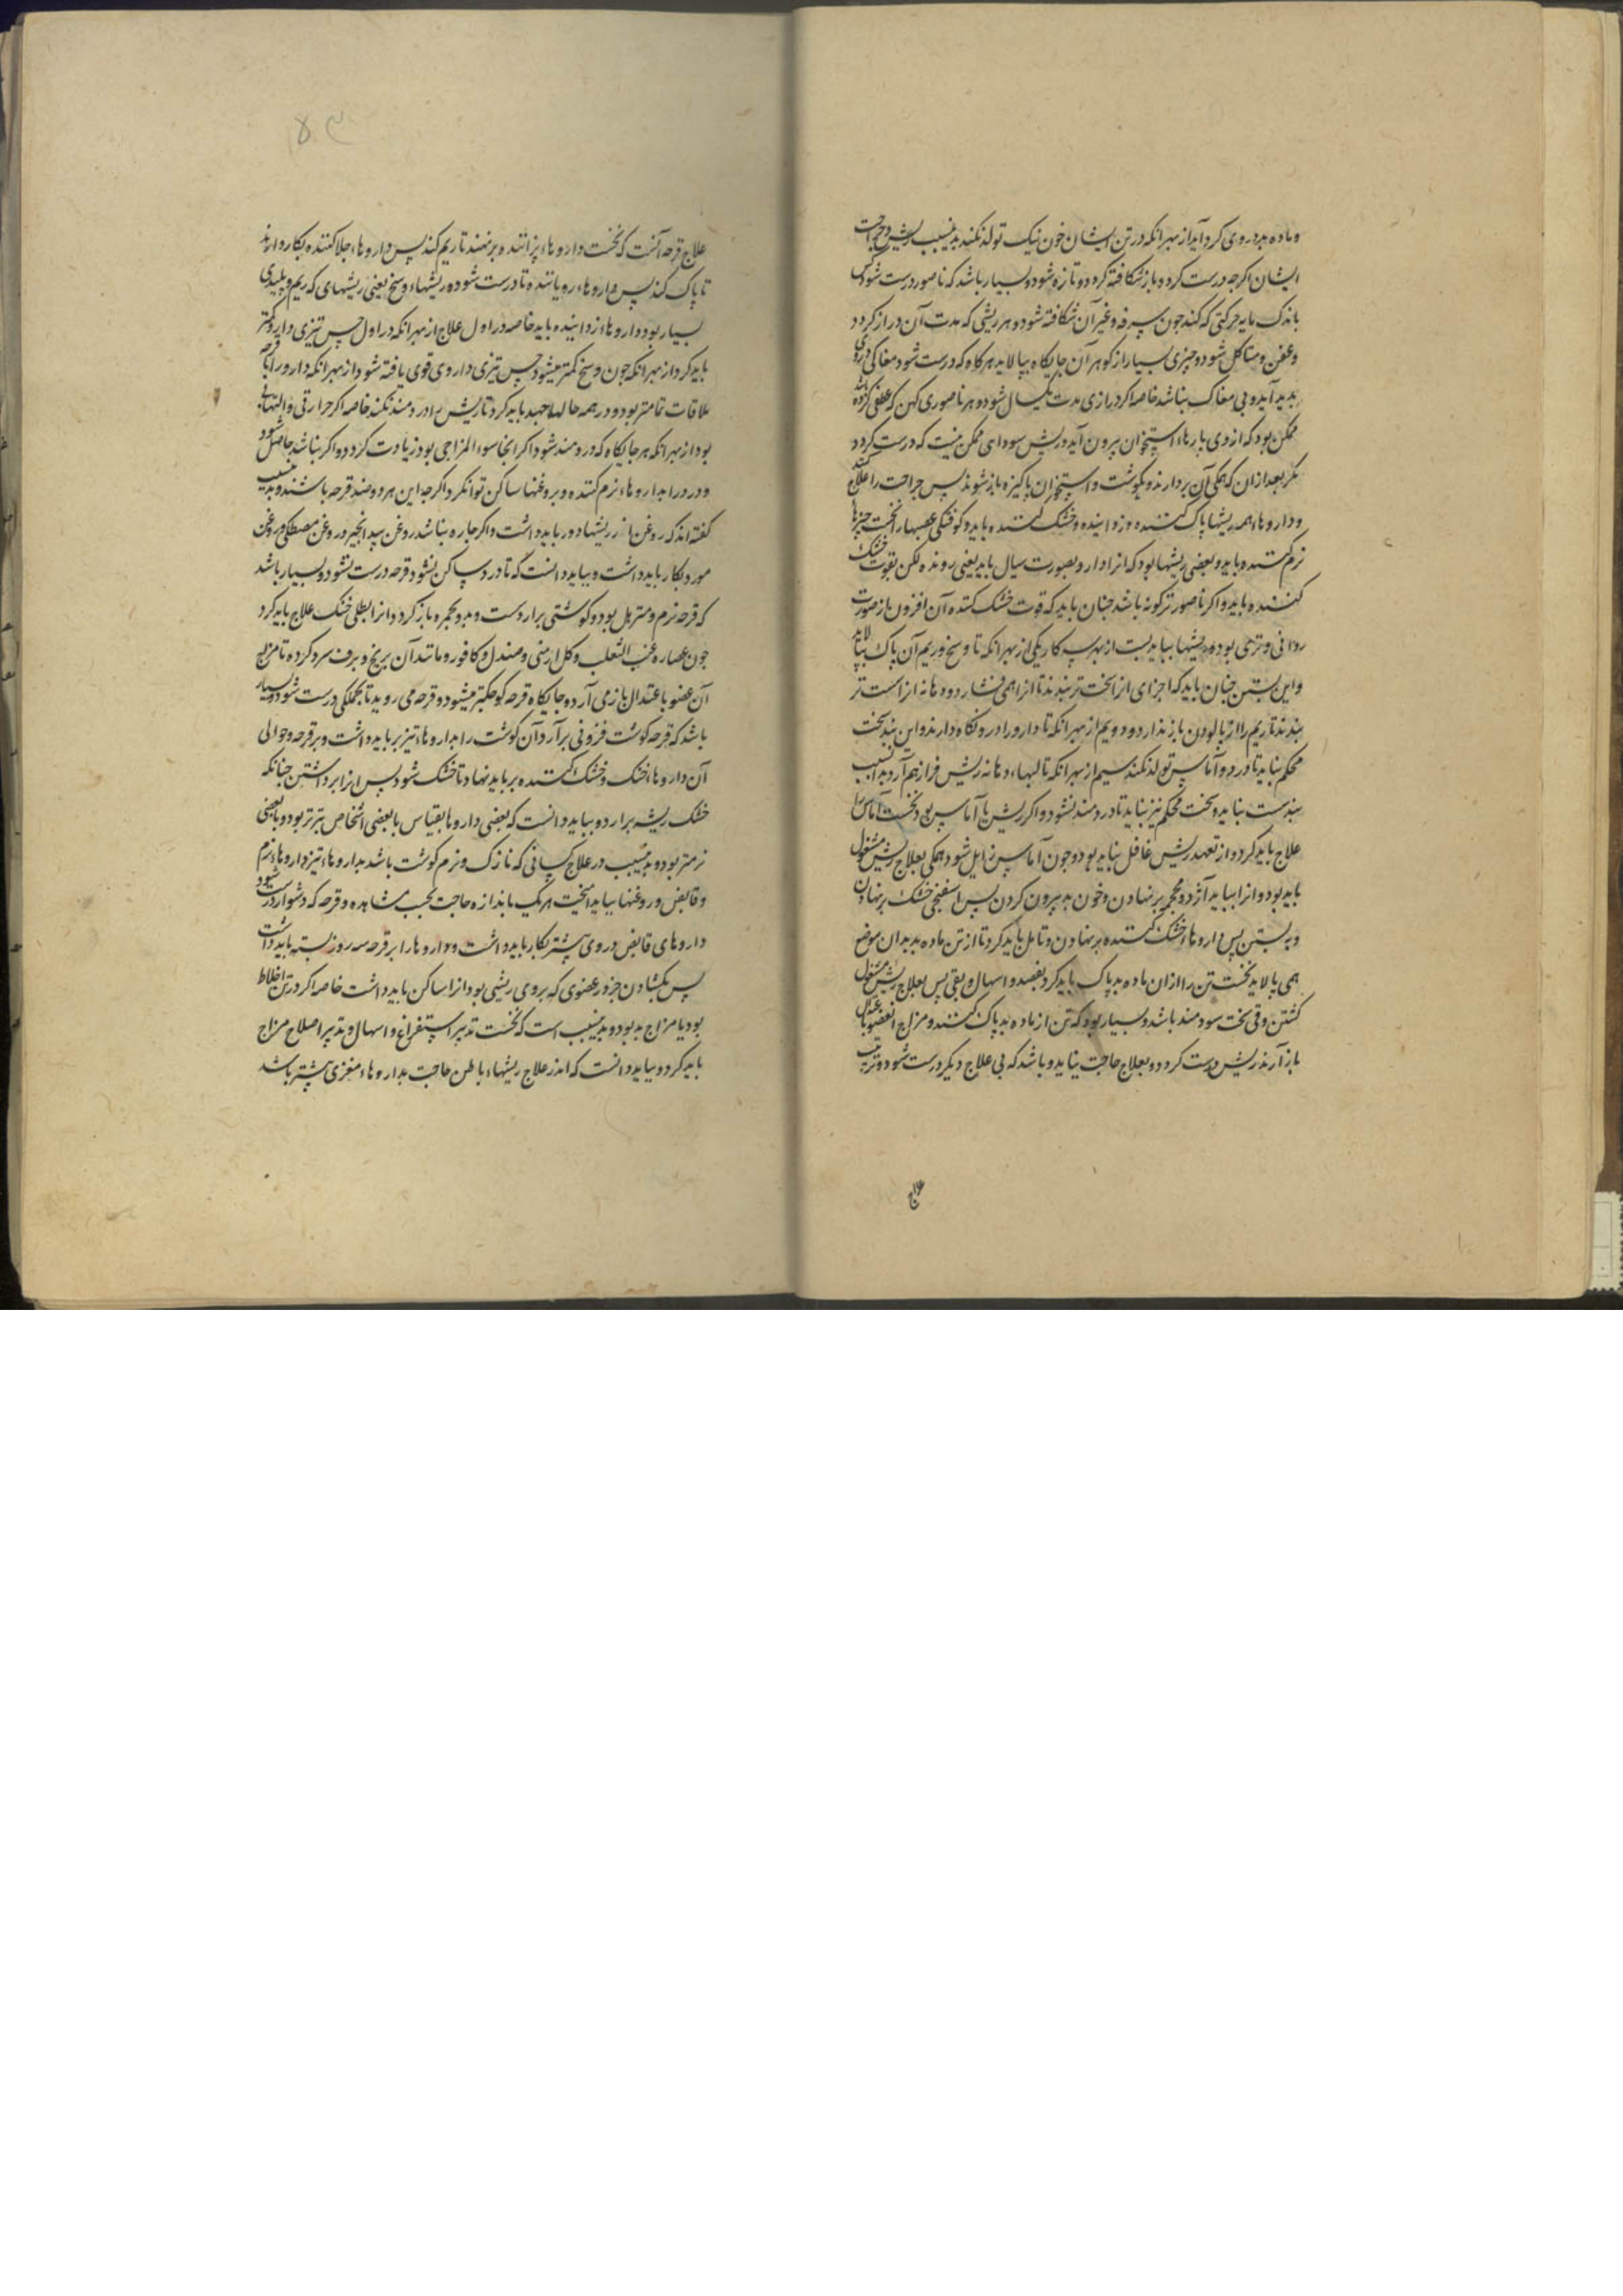 وماده بد بر وی کرد آید از بهر انکه در تن ایشان خون نیک تولد نکند بدین سبب ریش و جراحت
ایشان اکرچه درست کردد باز شکافته کردد و تازه شود و بسیار باشد که ناصور درست شود پس
باندک مایه حرکتی که کند چون سرفه و غیر آن شکافته شود و هر ریشی که مدت آن دراز کردد
و عفن و متاکل شود و چیزی بسیار از کوهر آن جایکاه بپالاید هرکاه که درست شود مغاکی در وی
بدید آید و بی مغاک نباشد خاصه اکر درازی مدت یکسال شود و هر ناصوری کهن که عفنی کرده باشد
ممکن بود که از وی پارهاء استخوان بیرون آید و ریش سودای ممکن نیست که درست کردد
مکر بعد از ان که همکی آن بردارند و بکوشت و استخوان پاکیزه باز شوند پس جراحت را علاج کنند
و داروها همه ریشها پاک کننده و زداینده و خشک کننده باید و کوفتکی عصبها را نخست چیزها
نرم کننده باید و بعضی ریشها بود که انرا دارو بصورت سیال باید یعنی رونده لکن بقوت خشک
کننده باید و اکر ناصور ترکونه باشد چنان باید که قوت خشک کننده آن افزون باز صورت
روانی و تری بود و ریشها بباید بست از بهر سه کار یکی از بهر انکه تا وسخ و ریم آن پاک بپالاید
و این بستن چنان باید که اجزای انرا سخت تر ببندند تا انرا همی فشارد و دهانه انرا سست تر
ببندند تا ریم را از پالودن باز ندارد و دویم از بهر انکه تا دارو را در و نکاه دارند و این بند سخت
محکم نباید تا درد و آماس تولد نکند سیم از بهر انکه تا لبهاء دهانه ریش فراز هم آرد بدین سبب
بند سست نباید و سخت محکم نیز نباید تا دردمند نشود و اکر ریش با آماس بود نخست آماس را
علاج باید کرد و از تعهد ریش غافل نباید بود و چون آماس زایل شود همکی بعلاج ریش مشغول
باید بود و انرا بباید آژد و محجمه بر نهادن و خون بد بیرون کردن پس اسفنجی خشک بر نهادن
و به بستن پس داروهاء خشک کننده بر نهادن و تامل باید کرد تا از تن ماده بد بدان موضع
همی پالاید نخست تن را از ان ماده بد پاک باید کرد بفصد و اسهال و بقی پس بعلاج ریش مشغول
کشتن و قی سخت سودمند باشد و بسیار بود که تن از ماده بد پاک کنند و مزاج آن عضو با عتدال
باز آرند ریش درست کردد و بعلاج حاجت نیاید و باشد که بی علاج دیکر درست شود و ترتیب
علاج
۸۳
علاج قرحه آنست که نخست داروهاء پزاننده بر نهند تا ریم کند پس داروهاء جلا کننده بکار دارند
تا پاک کند پس داروهاء رویاننده تا درست شود و ریشهاء وسخ یعنی ریشهای که ریم و پلیدی
بسیار بود داروهاء زداینده باید خاصه در اول علاج از بهر انکه در اول حس تیزی دارو کمتر
باید کرد از بهر انکه چون وسخ کمتر میشود حس تیزی داروی قوی یافته شود از بهر انکه دارو را با قرحه
ملاقات تمامتر بود و در همه حالها جهد باید کرد تا ریش را دردمند نکند خاصه اکر حرارتی و التهابی
بود از بهر انکه هر جایکاه که دردمند شود اکر انجا سوء المزاجی بود زیادت کردد و اکر نباشد حاصل شود
و درد را بداروهاء نرم کننده و بروغنها ساکن توان کرد اکرچه این هر دو ضد قرحه باشند و بدین سبب
کفته اند که روغن از ریشها دور باید داشت و اکر چاره نباشد روغن بید انجیر و روغن مصطکی و روغن
مورد بکار باید داشت و بباید دانست که تا درد ساکن نشود قرحه درست نشود و بسیار باشد
که قرحه نرم و مترهل بود و کوشتی برارد سست و بد و بحمره باز کردد انرا بطلی خنک علاج باید کرد
چون عصاره عنب الثعلب و کل ارمنی و صندل و کافور و مانند آن بریخ و برف سرد کرده تا مزاج
آن عضو باعتدال باز می آرد و جایکاه قرحه کوچکتر میشود و قرحه می روید تا بجملکی درست شود و بسیار
باشد که قرحه کوشت فزونی بر آرد آن کوشت را بداروهاء تیز بر باید داشت و بر قرحه و حوالی
آن داروهاء خنک و خشک کننده بر باید نهاد تا خشک شود پس انرا برداشتن چنانکه
خشک ریشه برارد و بباید دانست که بعضی داروها بقیاس با بعضی اشخاص تیزتر بود و با بعضی
نرمتر بود و بدین سبب در علاج کسانی که نازک و نرم کوشت باشد بداروهاء تیز داروهاء نرم
و قابض و روغنها بباید امیخت هر یک باندازه حاجت بحسب مشاهده و قرحه که دشوار درست شود
داروهای قابض در وی بیشتر بکار باید داشت و داروها را بر قرحه سه روز بسته باید داشت
پس بکشادن جز در عضوی که بر وی ریشی بود انرا ساکن باید داشت خاصه اکر در تن اخلاط
بود یا مزاج بد بود و بدین سبب است که نخست تدبیر استفراغ و اسهال و تدبیر اصلاح مزاج
باید کرد و بباید دانست که اندر علاج ریشهاء باطن حاجت بداروهاء مغری بیشتر باشد